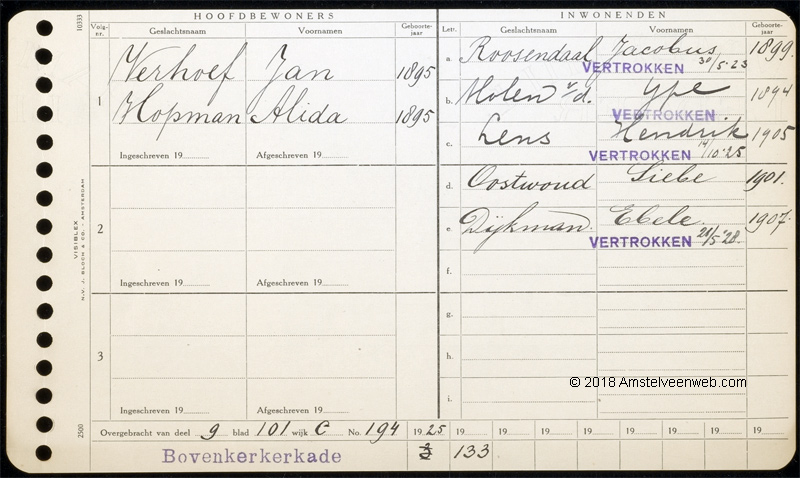 HOOFDBEWONERS
Volg-nr. Geslachtsnaam Voornamen Geboorte-jaar
1 Verhoef Jan 1895
Hopman Alida 1895
Ingeschreven 19 Afgeschreven 19
2
Ingeschreven 19 Afgeschreven 19
3
Ingeschreven 19 Afgeschreven 19
INWONENDEN
Lett. Geslachtsnaam Voornamen Geboorte-jaar
a. Roosendaal Jacobus 1899.
VERTROKKEN 30/5-25
b. Molen v/d. Ype 1894
VERTROKKEN
c. Lens Hendrik 1905
VERTROKKEN 14/10-25
d. Oostwoud Siebe 1901.
e. Dijkman. Ebele. 1907.
VERTROKKEN 28/5-'28.
f.
g.
h.
i.
© 2018 Amstelveenweb.com
Overgebracht van deel 9 blad 101 wijk C No. 194 19 25 19 19 19 19 19 19 19
Bovenkerkerkade 133
10333
VISIBLEX
N.V. J. BLOCH & CO. - AMSTERDAM
2500